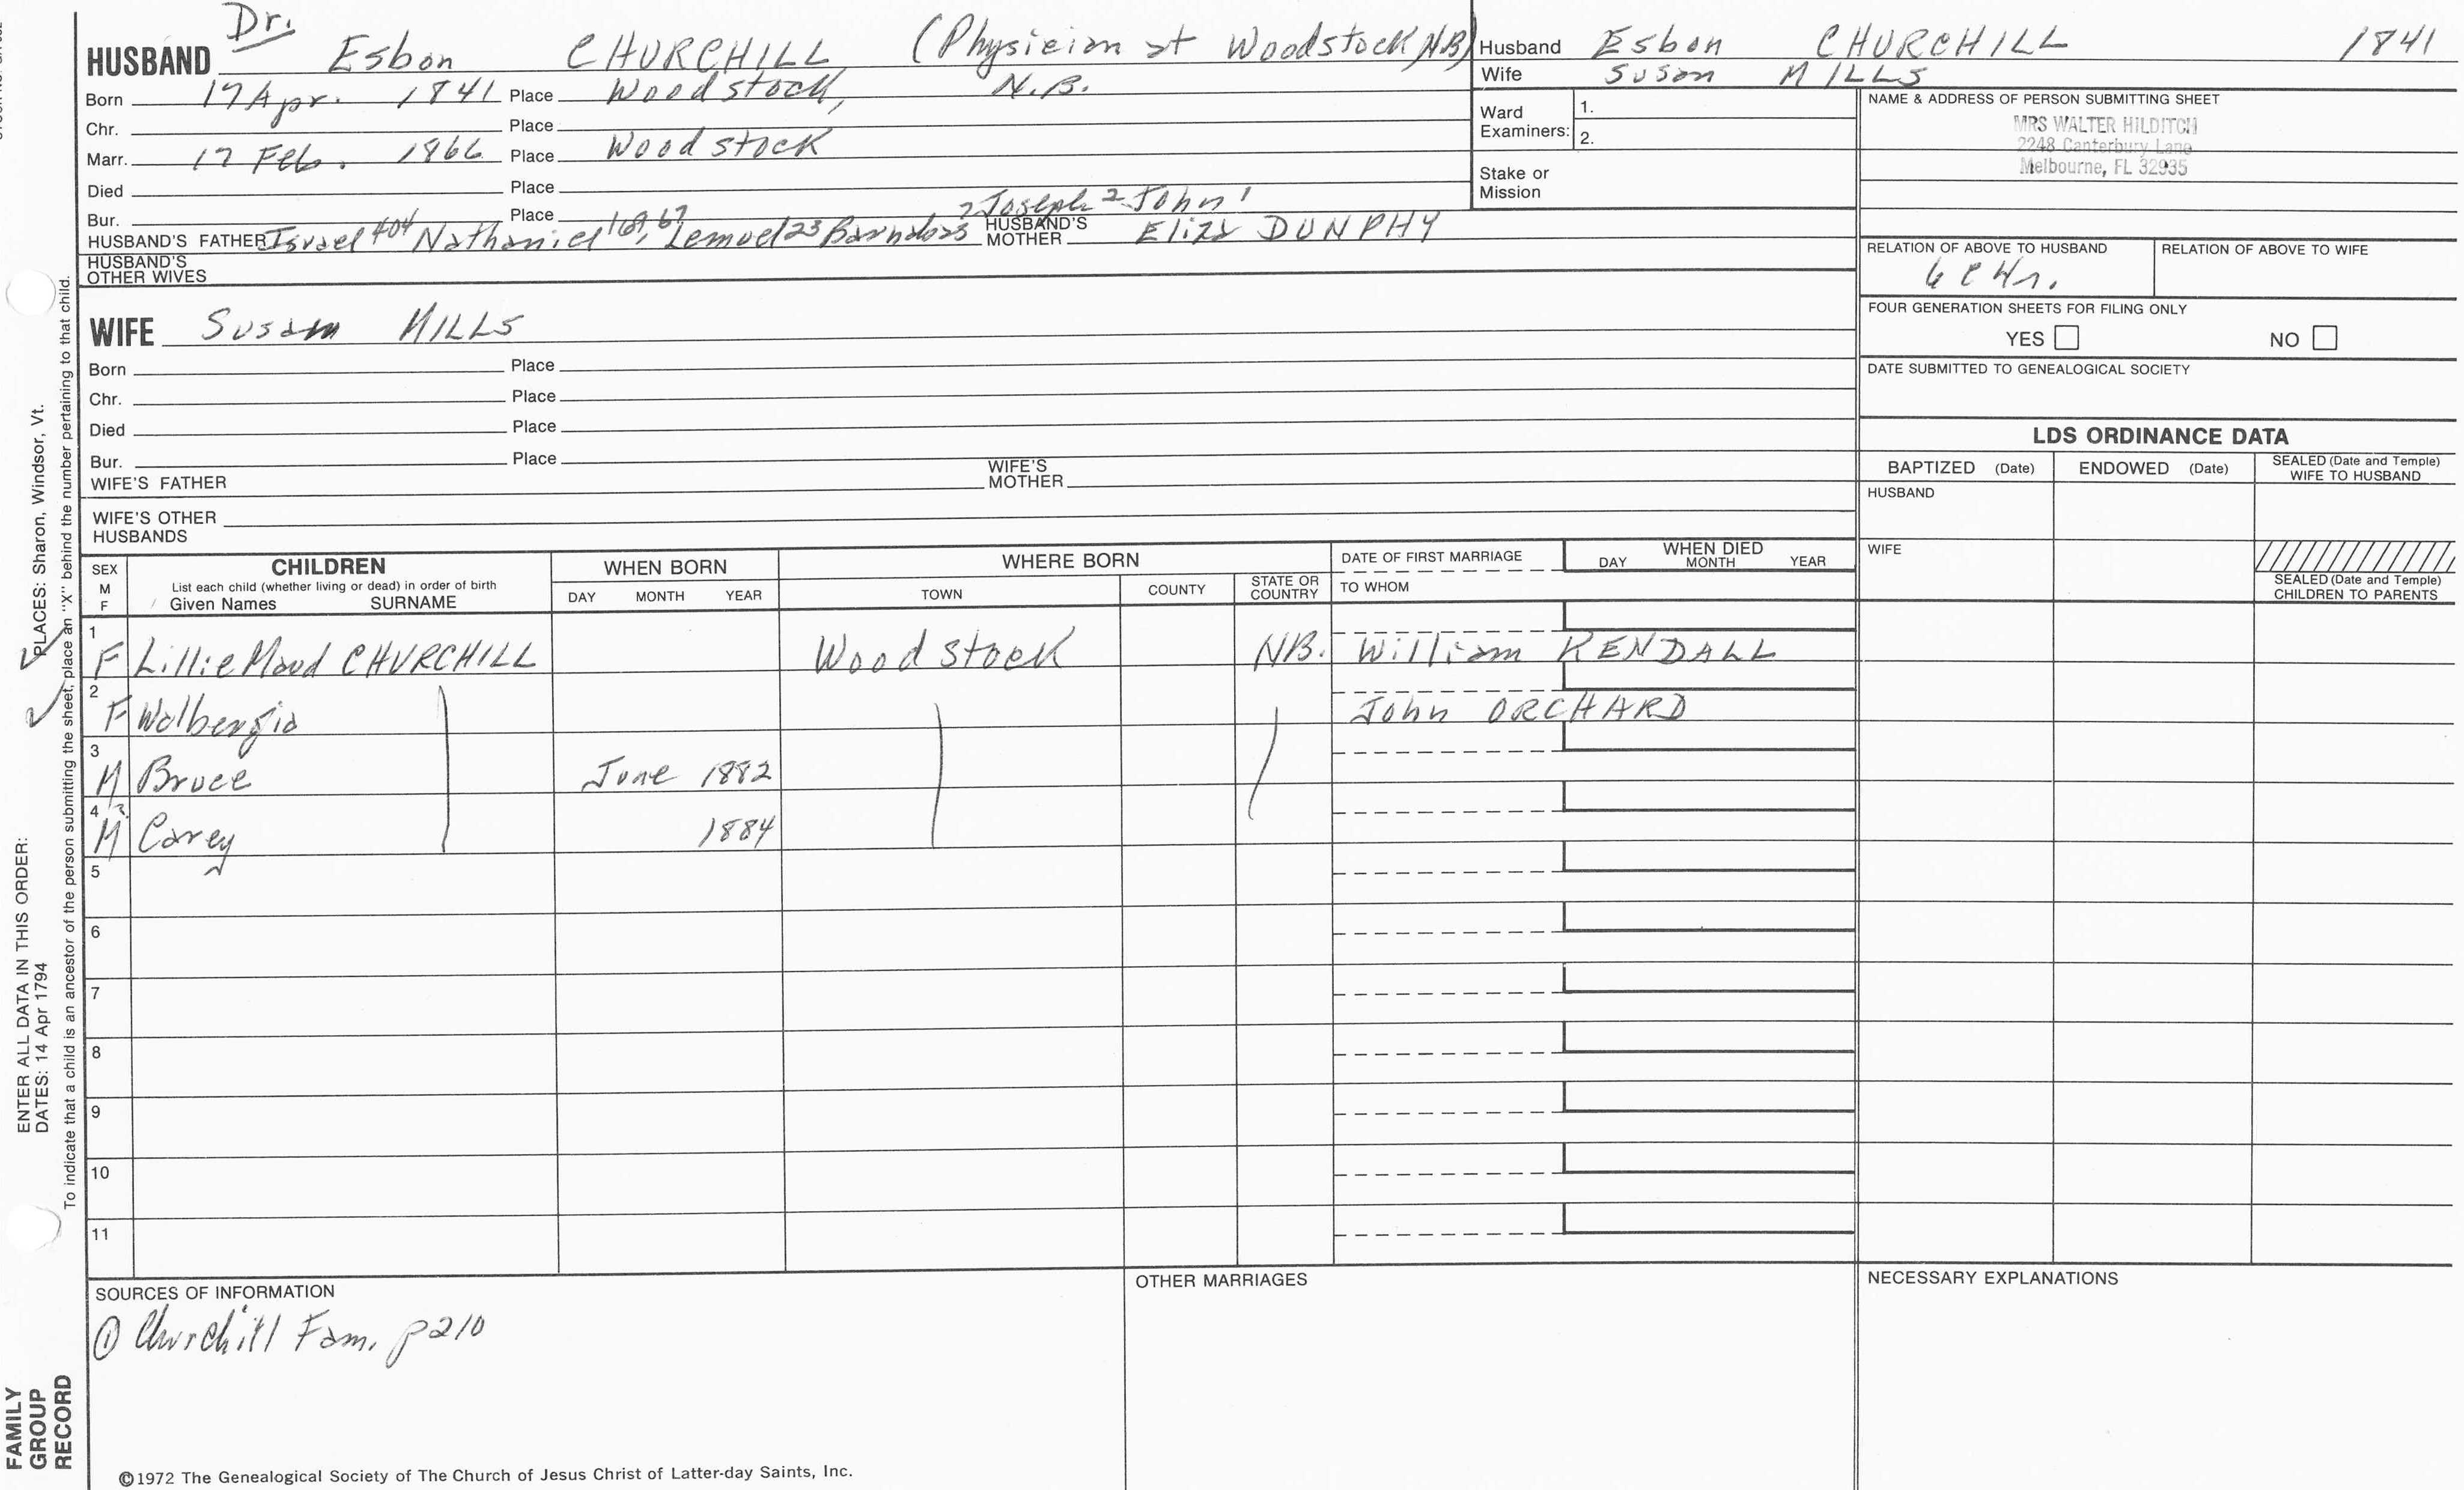 Dr.
HUSBAND Esbon CHURCHILL (Physician at Woodstock NB)
Born 17 Apr. 1841 Place Woodstock, N.B.
Chr. Place
Marr. 17 Feb. 1866 Place Woodstock
Died Place
Bur. Place
Joseph 2 John 1
HUSBAND'S FATHER Israel 404 Nathaniel 169, 67 Lemuel 23 Barnabas 3 HUSBAND'S MOTHER Eliza DUNPHY
HUSBAND'S
OTHER WIVES
WIFE Susan MILLS
Born Place
Chr. Place
Died Place
Bur. Place
WIFE'S FATHER WIFE'S MOTHER
WIFE'S OTHER
HUSBANDS
Husband Esbon CHURCHILL 1841
Wife Susan MILLS
Ward
Examiners: 1.
2.
Stake or
Mission
NAME & ADDRESS OF PERSON SUBMITTING SHEET
MRS WALTER HILDITCH
2248 Canterbury Lane
Melbourne, FL 32935
RELATION OF ABOVE TO HUSBAND RELATION OF ABOVE TO WIFE
FOUR GENERATION SHEETS FOR FILING ONLY
YES NO
DATE SUBMITTED TO GENEALOGICAL SOCIETY
LDS ORDINANCE DATA
BAPTIZED (Date) ENDOWED (Date) SEALED (Date and Temple)
WIFE TO HUSBAND
HUSBAND
WIFE
SEALED (Date and Temple)
CHILDREN TO PARENTS
SEX
M
F
CHILDREN
List each child (whether living or dead) in order of birth
Given Names SURNAME
WHEN BORN
DAY MONTH YEAR
WHERE BORN
TOWN COUNTY STATE OR COUNTRY
DATE OF FIRST MARRIAGE
TO WHOM
WHEN DIED
DAY MONTH YEAR
1 F Lillie Maud CHURCHILL Woodstock NB. William KENDALL
2 F Walbergia John ORCHARD
3 M Bruce June 1882
4 M Carey 1884
5
6
7
8
9
10
11
SOURCES OF INFORMATION
① Churchill Fam. p 210
OTHER MARRIAGES
NECESSARY EXPLANATIONS
©1972 The Genealogical Society of The Church of Jesus Christ of Latter-day Saints, Inc.
ENTER ALL DATA IN THIS ORDER:
DATES: 14 Apr 1794 PLACES: Sharon, Windsor, Vt.
To indicate that a child is an ancestor of the person submitting the sheet, place an "X" behind the number pertaining to that child.
FAMILY
GROUP
RECORD